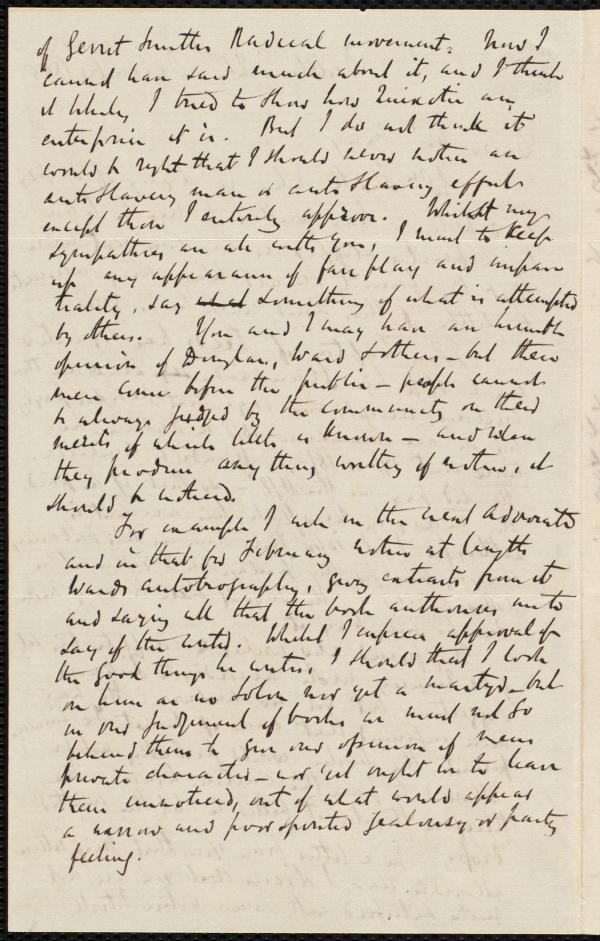 of Gerrit Smith's Radical movement. Now I
cannot have said much about it, and I think
it likely I tried to show how Quixotic any
enterprise it is. But I do not think it
would be right that I should never notice an
anti Slavery man or anti Slavery efforts
except those I entirely approve. Whilst my
sympathies are all with you, I must to keep
up any appearance of fair play and impar
tiality, say something of what is attempted
by others. You and I may have an humble
opinion of Douglass, Ward & others - but these
men come before the public - people cannot
be always judged by the community on their
merits of which little is known - and when
they produce any thing worthy of notice, it
should be noticed.
For example I will in the next Advocate
and in that for February notice at length
Wards autobiography, giving extracts from it
and saying all that the book authorises me to
say of the writer. Whilst I express approval of
the good things he writes, I should that I look
on him as no Solon nor yet a martyr - but
in our judgement of books we must not go
behind them to give our opinion of mens
private character - nor yet ought we to leave
them unnoticed, out of what would appear
a narrow and poor spirited jealousy or party
feeling.